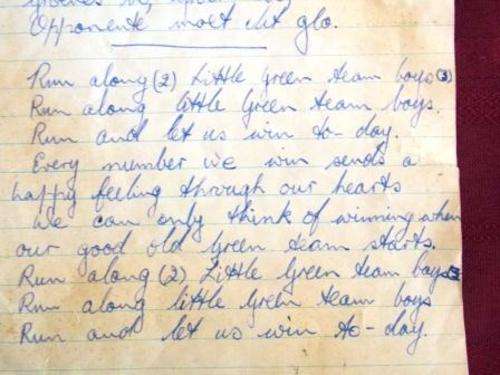 Opponents must let glo.
Run along (2) Little Green team boys (3)
Run along little Green team boys.
Run and let us win to-day.
Every number we win sends a
happy feeling through our hearts
We can only think of winning when
our good old Green team starts.
Run along (2) Little Green team boys
Run along little Green team boys
Run and let us win to-day.